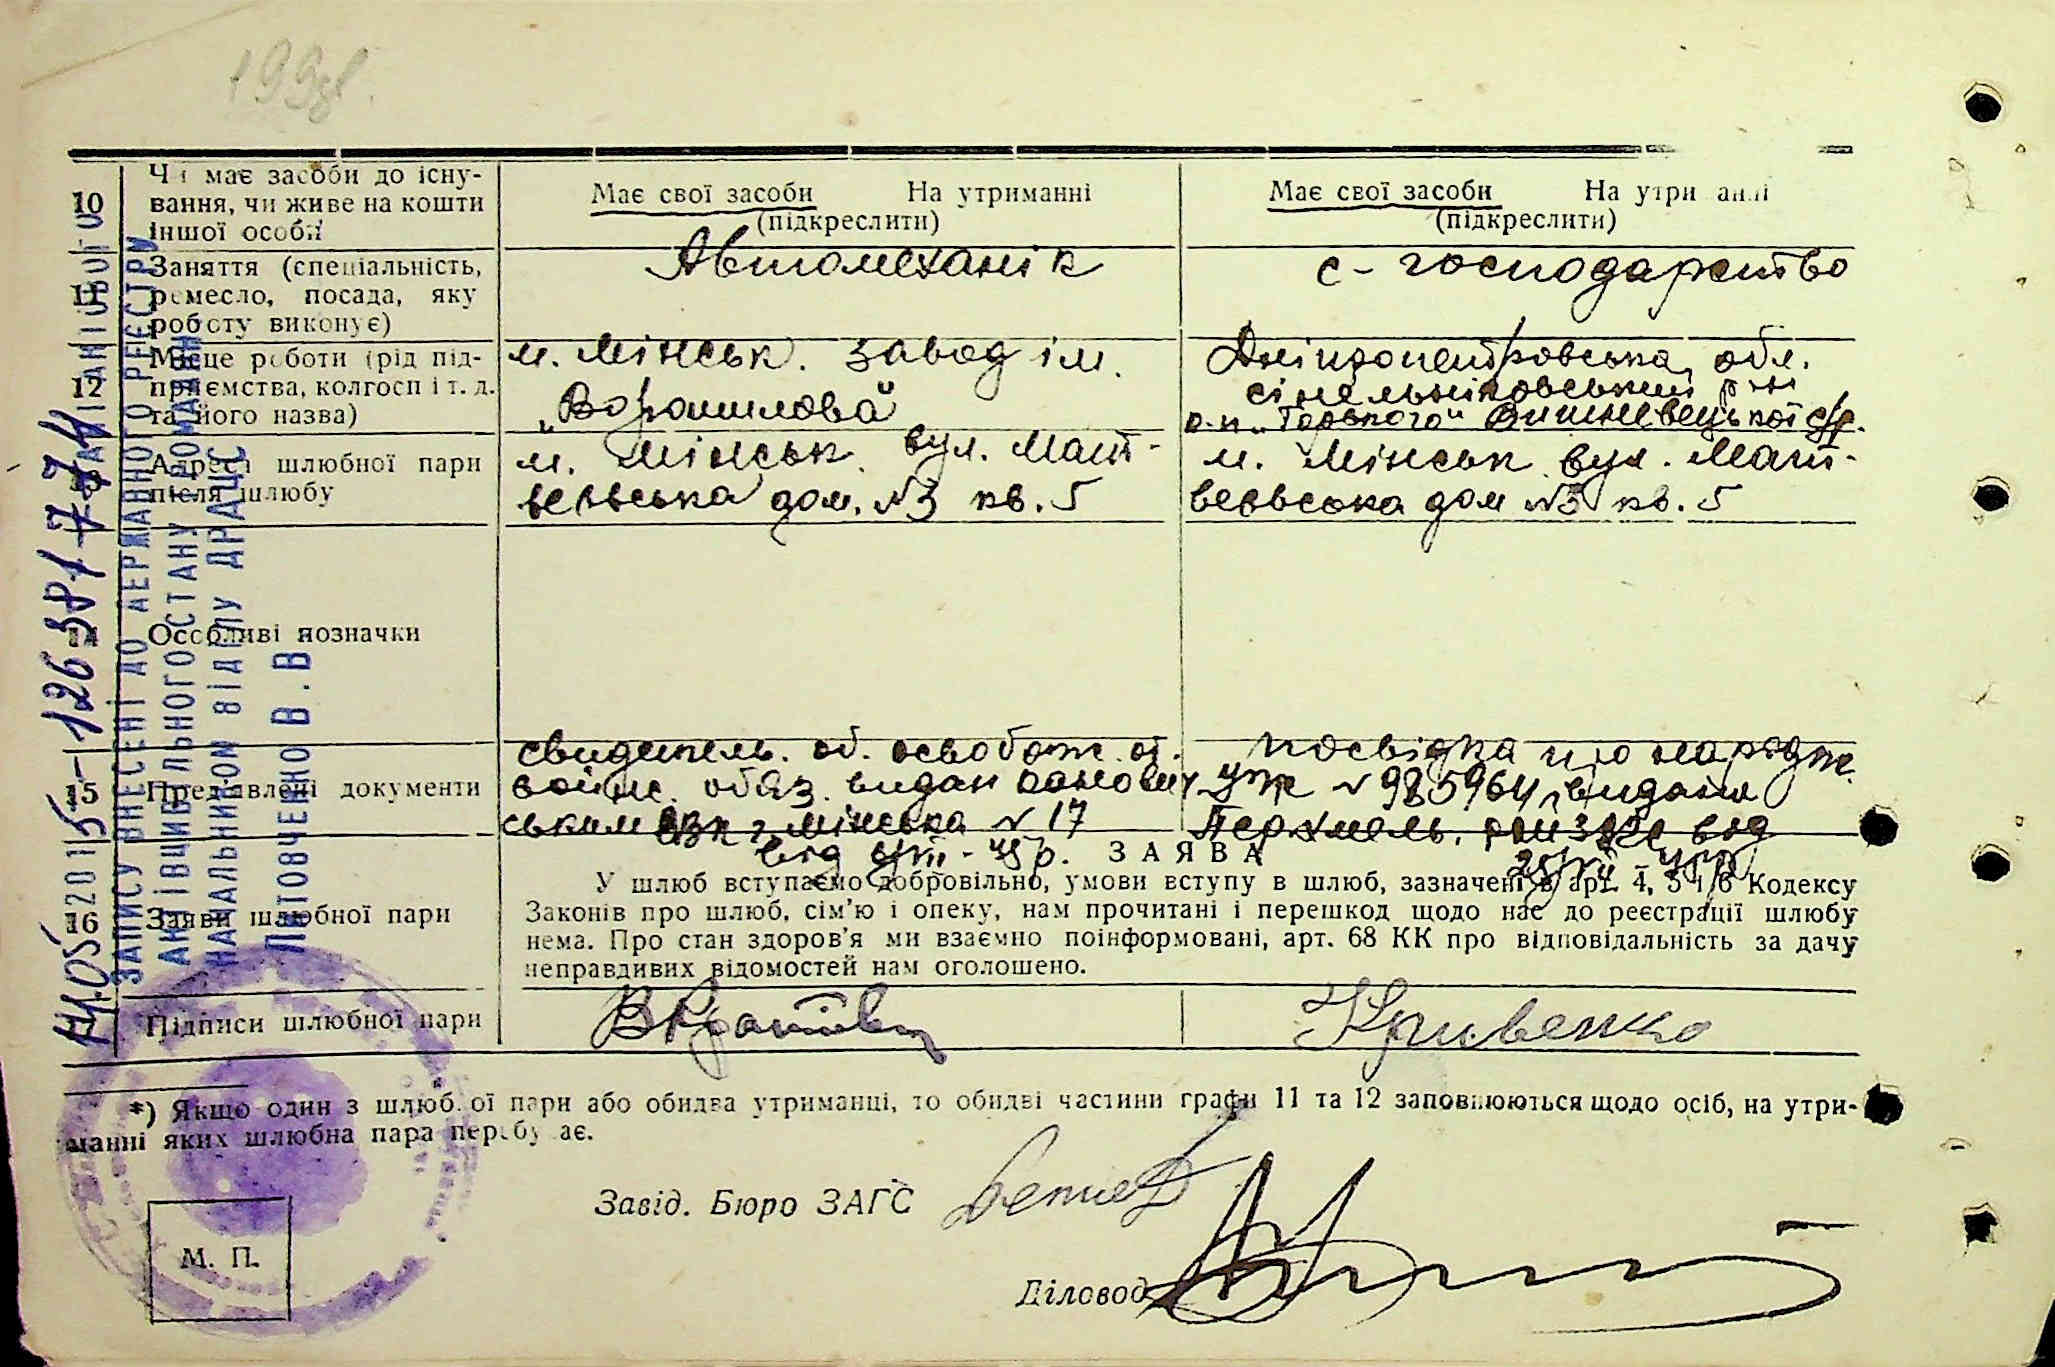 10
Чи має засоби до існу-
вання, чи живе на кошти
іншої особи
Має свої засоби На утриманні
(підкреслити)
Має свої засоби На утриманні
(підкреслити)
11
Заняття (спеціальність,
ремесло, посада, яку
роботу виконує)
Автомеханік
с-господарство
12
Місце роботи (рід під-
приємства, колгосп і т. д.
та його назва)
м. Мінськ. завод ім.
„Ворошилова"
Дніпропетровська обл.
сінельніковський р-н
„Горького" Вишневецької с/р.
13
Адреса шлюбної пари
після шлюбу
м. Мінськ. вул. Мат-
веевська дом. №3 кв. 5
м. Мінськ вул. Мат-
веевська дом №3 кв. 5
14
Особливі позначки
15
Пред'явлені документи
свидетель. об. освобож. от.
воінс. обяз. видан
ським ВВК г. мінська № 17
від
посвідка про народж.
№ 925964 видана
від
16
Заяви шлюбної пари
ЗАЯВА
У шлюб вступаємо добровільно, умови вступу в шлюб, зазначені в арт. 4, 5 і 6 Кодексу
Законів про шлюб, сім'ю і опеку, нам прочитані і перешкод щодо нас до реєстрації шлюбу
нема. Про стан здоров'я ми взаємно поінформовані, арт. 68 КК про відповідальність за дачу
неправдивих відомостей нам оголошено.
17
Підписи шлюбної пари
Кривенко
*) Якщо один з шлюбної пари або обидва утриманці, то обидві частини графи 11 та 12 заповнюються щодо осіб, на утри-
манні яких шлюбна пара перебуває.
Завід. Бюро ЗАГС
Діловод
М. П.
ЗАПИСУ ВНЕСЕНІ ДО ДЕРЖАВНОГО РЕЄСТРУ
АКТІВ ЦИВІЛЬНОГО СТАНУ ГРОМАДЯН
НАЧАЛЬНИКОМ ВІДДІЛУ ДРАЦС
Литовченко В.В